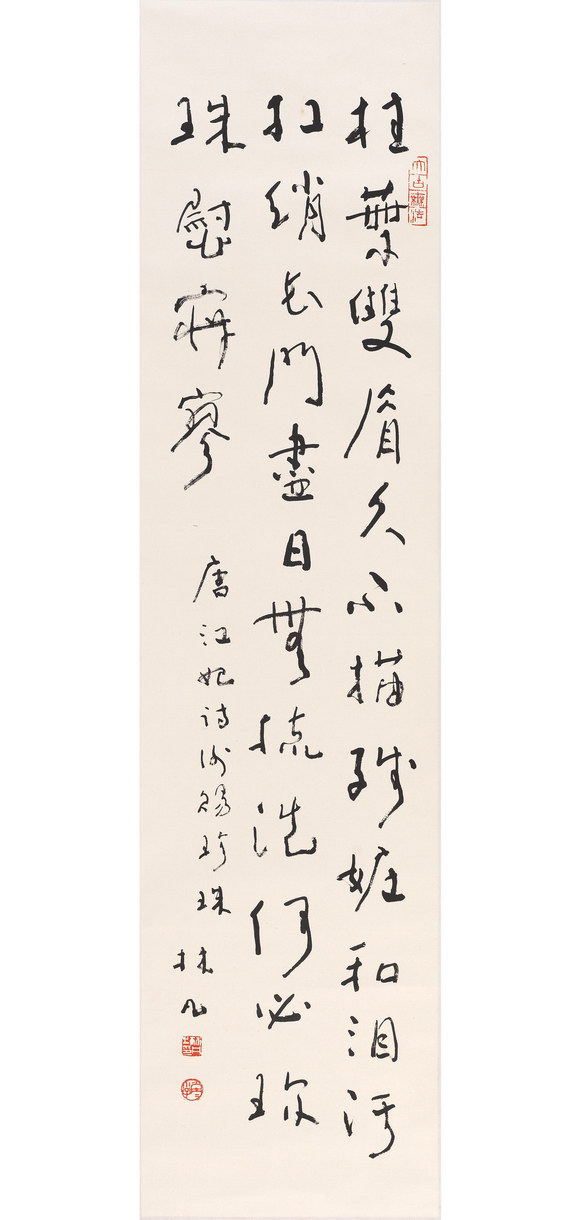 桂葉雙眉久不描殘妝和泪污
紅綃長門盡日無梳洗何必珍
珠慰寂寥
唐江妃詩謝賜珍珠
林凡